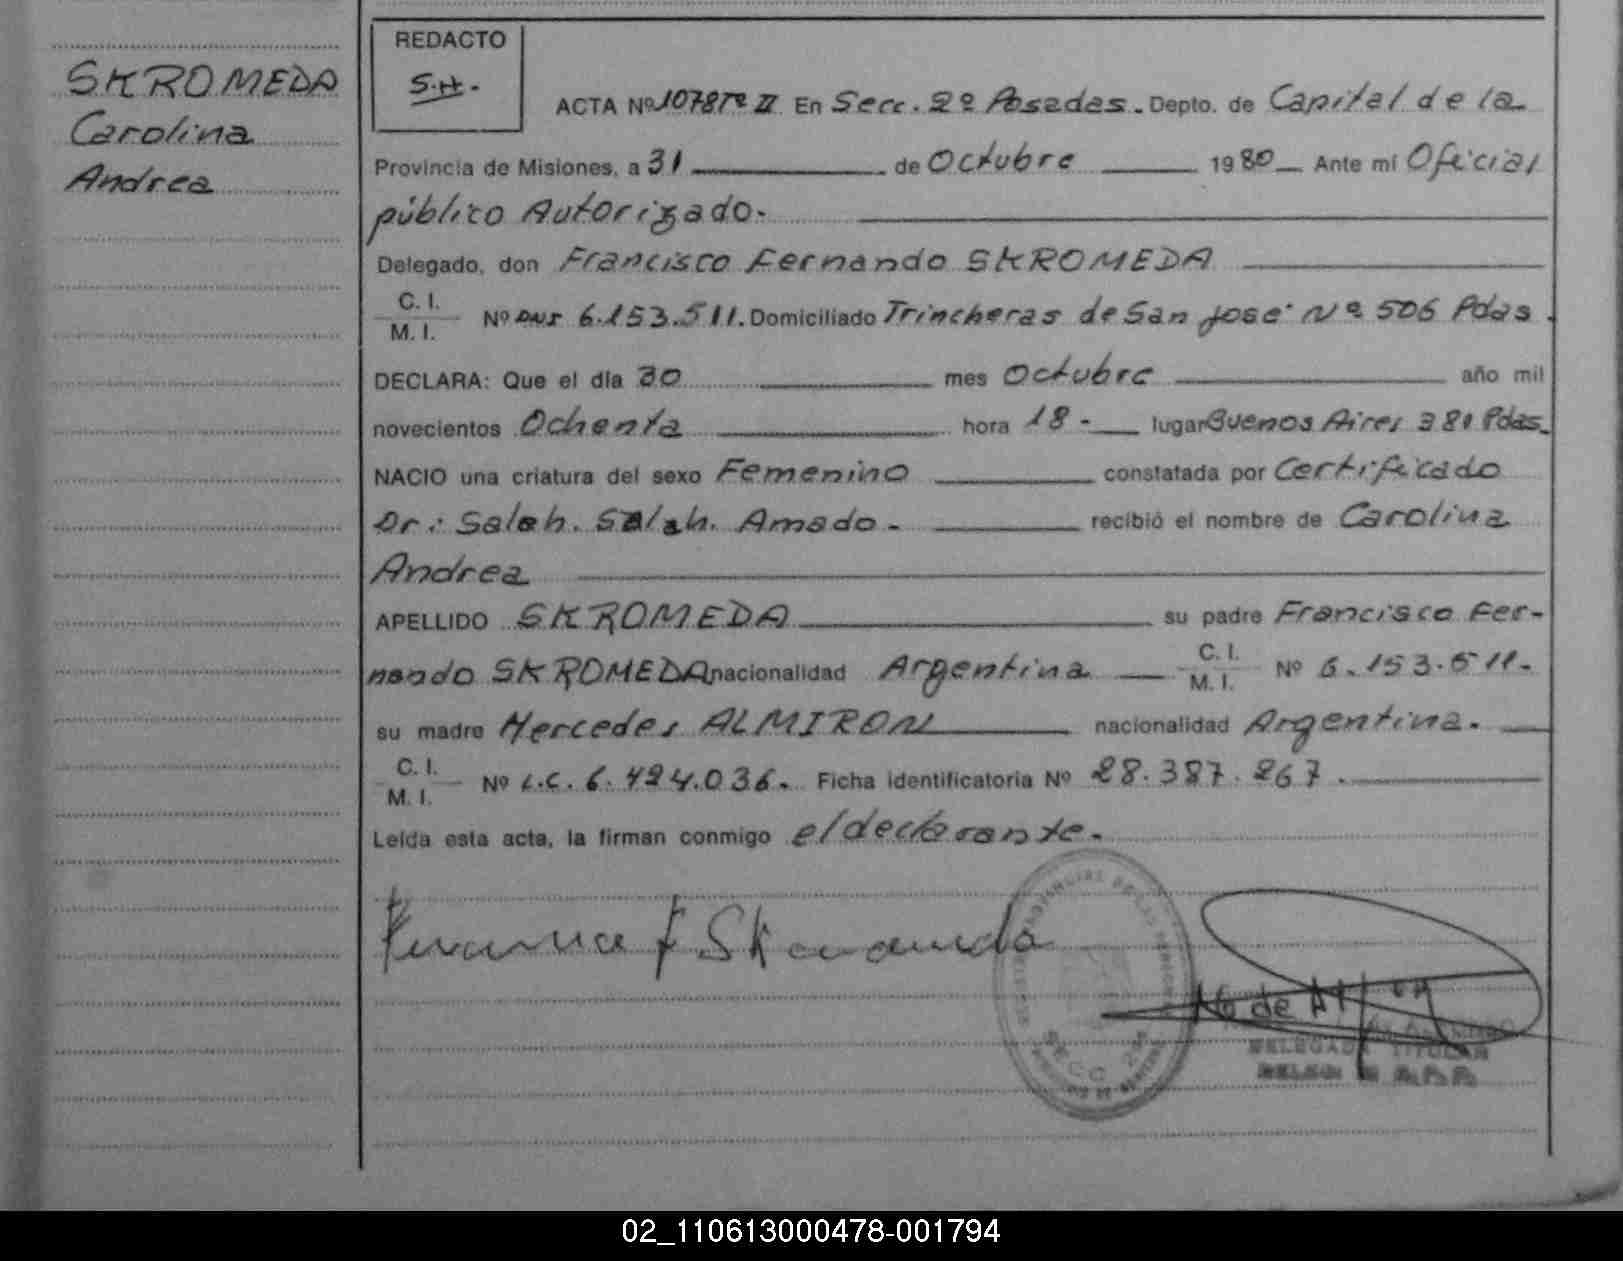 SKROMEDA
Carolina
Andrea
REDACTO
S.H.-
ACTA Nº 1078 Tº II En Secc. 2º Posadas. Depto. de Capital de la
Provincia de Misiones, a 31 de Octubre 1980 Ante mí Oficial
público Autorizado.
Delegado, don Francisco Fernando SKROMEDA
C. I.
M. I.
Nº DNI 6.153.511. Domiciliado Trincheras de San José Nº 506 Pdas.
DECLARA: Que el día 30 mes Octubre año mil
novecientos Ochenta hora 18- lugar Buenos Aires 381 Pdas.
NACIO una criatura del sexo Femenino constatada por Certificado
Dr: Saleh. Salah. Amado. recibió el nombre de Carolina
Andrea
APELLIDO SKROMEDA su padre Francisco Fer-
nando SKROMEDA nacionalidad Argentina C. I.
M. I. Nº 6.153.511.
su madre Mercedes ALMIRON nacionalidad Argentina.
C. I.
M. I.
Nº L.C. 6.424.036. Ficha identificatoria Nº 28.387.267.
Leída esta acta, la firman conmigo el declarante.
SECC 2ª
DELEGADA TITULAR
02_110613000478-001794